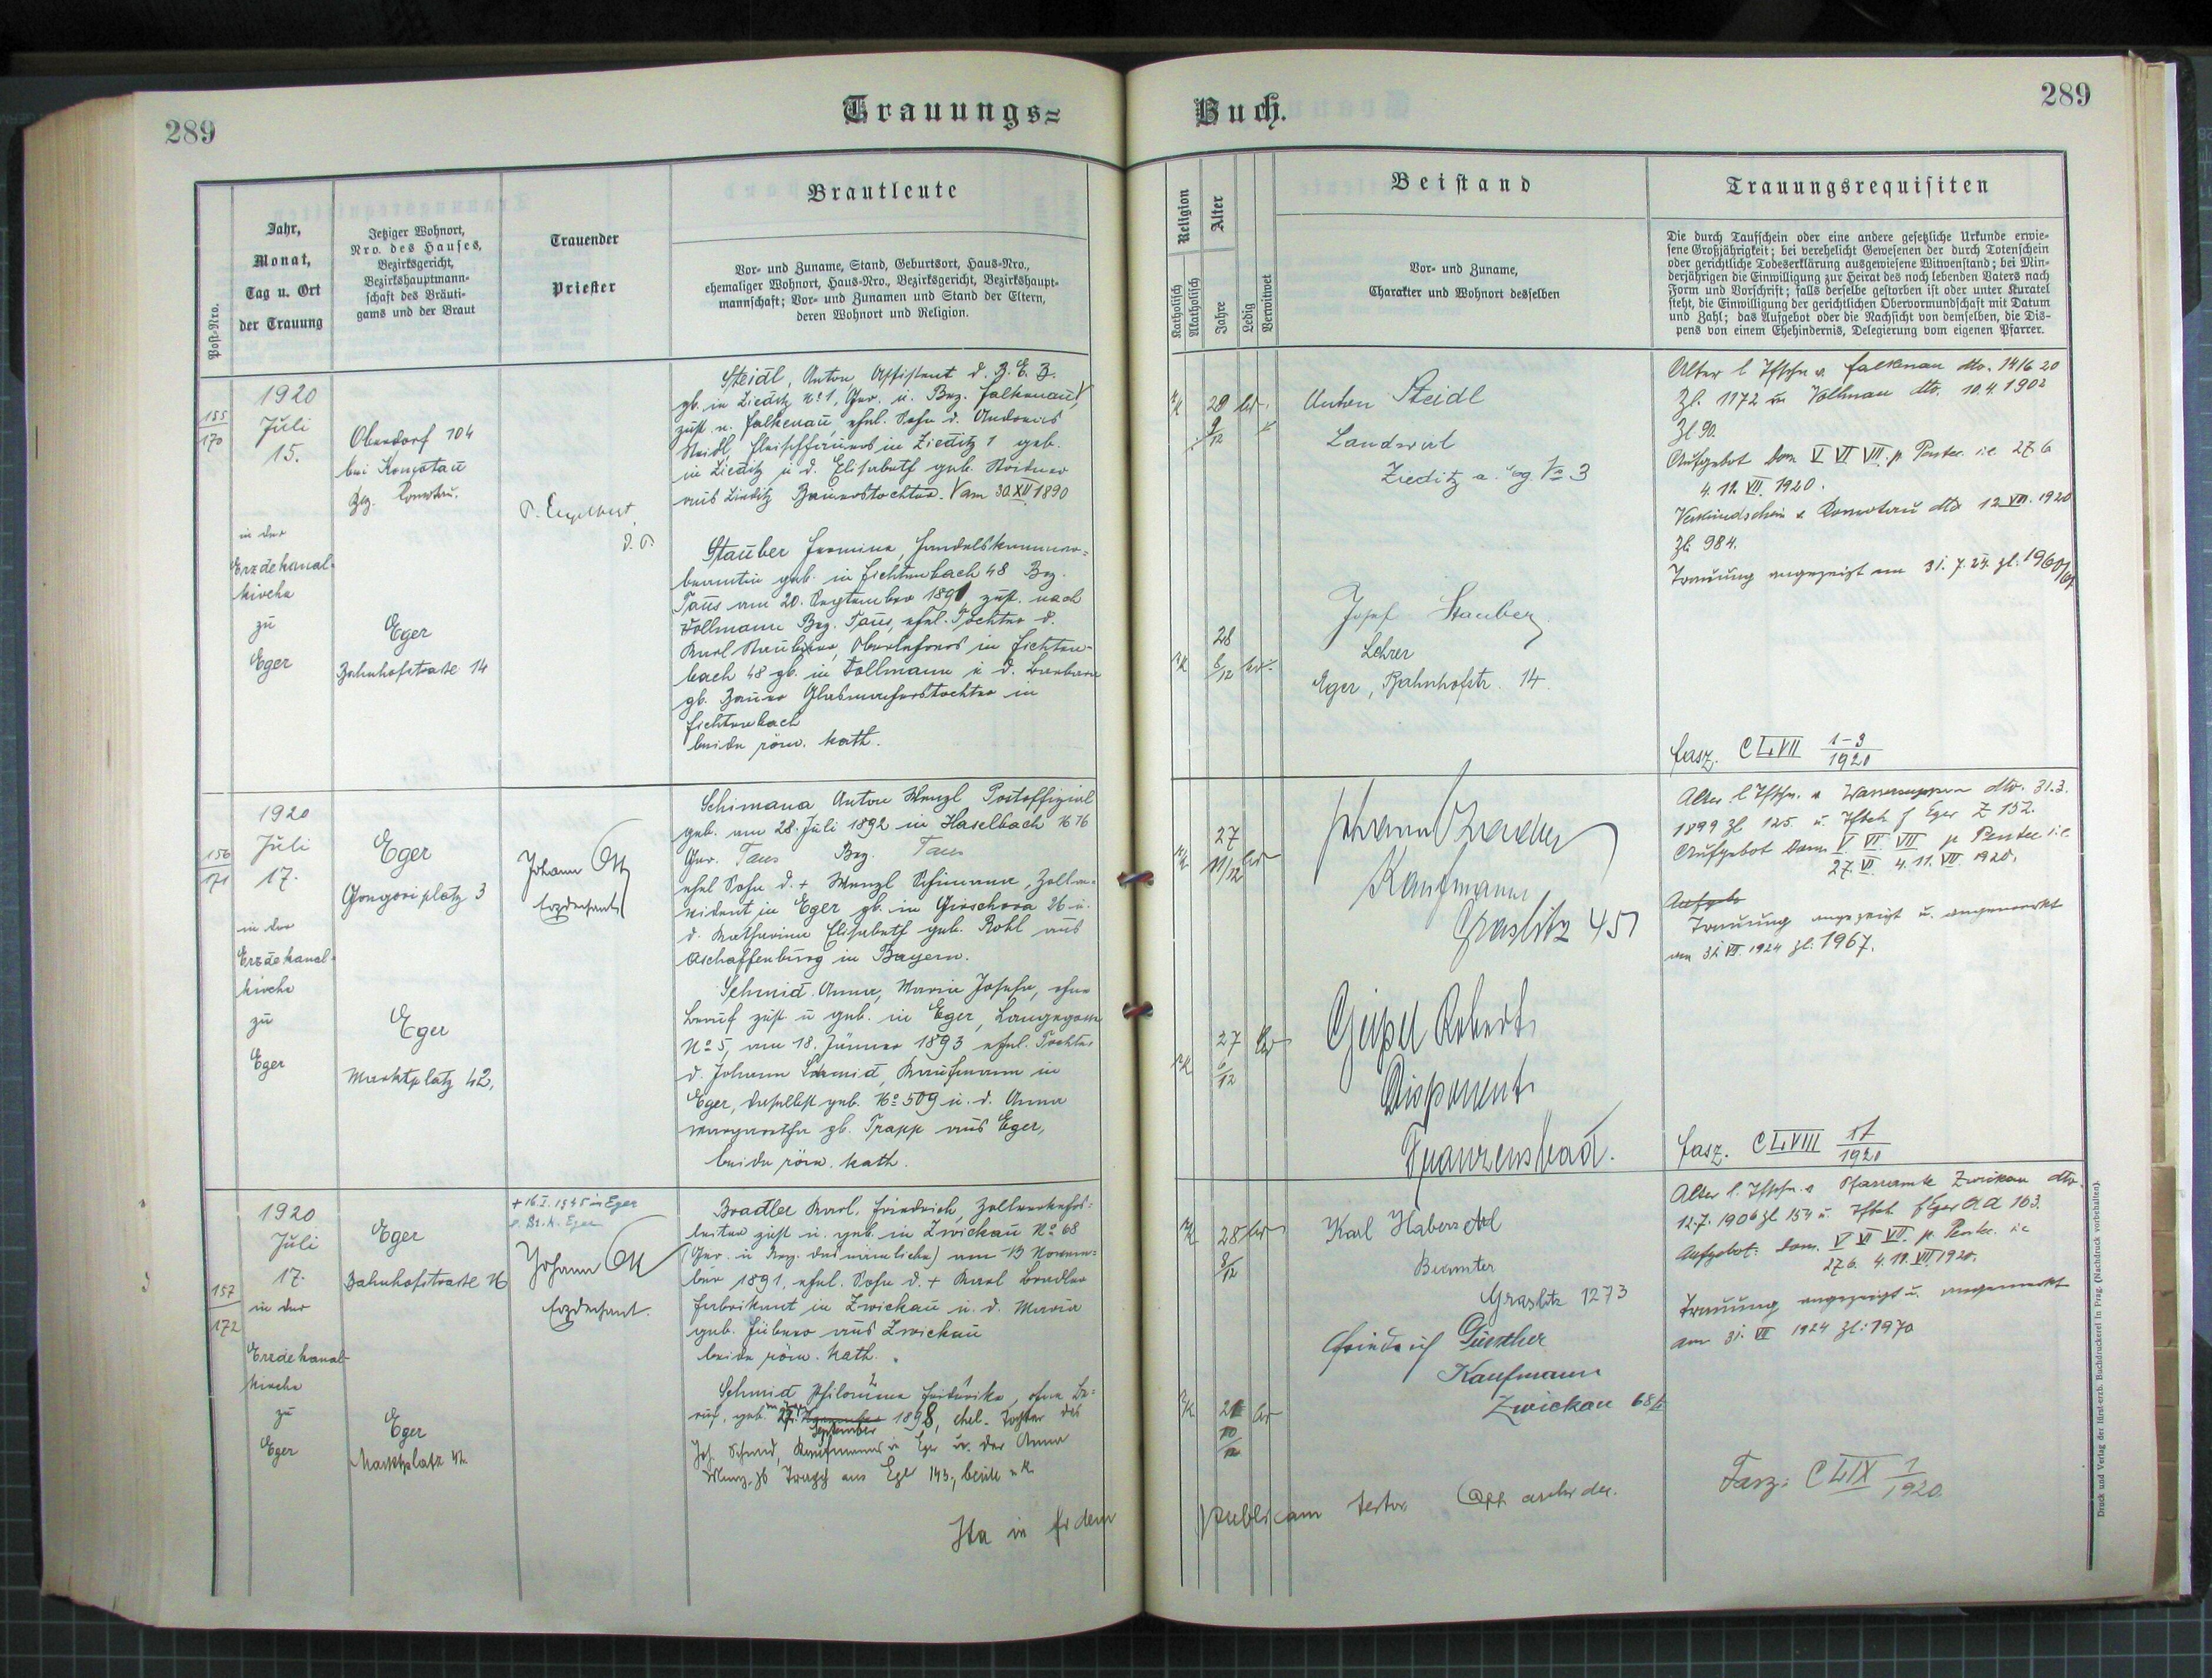 289
Trauungs=
Post-Nro.
Jahr,
Monat,
Tag u. Ort
der Trauung
Jetziger Wohnort,
Nro. des Hauses,
Bezirksgericht,
Bezirkshauptmann-
schaft des Bräuti-
gams und der Braut
Trauender
Priester
Brautleute
Vor- und Zuname, Stand, Geburtsort, Haus-Nro.,
ehemaliger Wohnort, Haus-Nro., Bezirksgericht, Bezirkshaupt-
mannschaft; Vor- und Zunamen und Stand der Eltern,
deren Wohnort und Religion.
155
170
1920
Juli
15.
in der
Erzdekanal-
kirche
zu
Eger
Oberdorf 104
bei Komotau
Bez. Komotau.
Eger
Bahnhofstraße 14
P. Engelbert
Steidl, Anton, Assistent d. B.E.B.
gb. in Zieditz No 1, Ger. u. Bez. Falkenau,
zust. n. Falkenau, ehel. Sohn d. Andreas
Steidl, in Zieditz 1 geb.
in Zieditz u. d. Elisabeth geb.
aus Zieditz Bauerstochter. V am 30.XII 1890
Stauber Hermine, Handelskammer=
beamtin geb. in Fichtenbach 48 Bez.
Taus am 20. September 1891 zust. nach
Vollmau Bez. Taus, ehel. Tochter d.
Karl Stauber, Oberlehrers in Fichten-
bach 48 gb. in Vollmau u. d. Barbara
gb. Bauer Glasmacherstochter in
Fichtenbach
beide röm. kath.
156
171
1920
Juli
17.
in der
Erzdekanal-
kirche
zu
Eger
Eger
Eger
Marktplatz 42,
Johann Ott
Erzdechant
Schimana Anton Wenzl Postoffizial
geb. am 28. Juli 1892 in Haselbach No 76
Ger. Taus Bez. Taus
ehel Sohn d. + Wenzl Schimana, Zollre-
vident in Eger gb. in 26 u.
d. Katharina Elisabeth geb. Rohl aus
Aschaffenburg in Bayern.
Schmid Anna, Maria Josefa, ohne
Beruf zust. u geb. in Eger, Langegasse
No 5, am 18. Jänner 1893 ehel. Tochter
d. Johann Schmid, Kaufmann in
Eger, daselbst geb. No 509 u. d. Anna
Margaretha gb. Trapp aus Eger,
beide röm. kath.
157
172
1920
Juli
17.
in der
Erzdekanal-
kirche
zu
Eger
Eger
Bahnhofstraße 16
Eger
Marktplatz 42.
+ 16.I.1945 in Eger
Johann Ott
Erzdechant.
Bradler Karl, Friedrich,
leiter zust u. geb. in Zwickau No 68
(Ger. u Bez. das nämliche) am 13 Novem-
ber 1891, ehel. Sohn d. + Karl Bradler
Fabrikant in Zwickau u. d. Maria
geb. Hübner aus Zwickau
beide röm. kath.
Schmid Philomena Friderika, ohne Be=
ruf, geb. 27. September 1898, ehel. Tochter des
Joh. Schmid, Kaufmanns in Eger u. der Anna
Marg. gb Trapp aus Eger 143, beide r. k.
Ita in fidem
289
Buch.
Religion
Katholisch
Akatholisch
Alter
Jahre
Ledig
Verwitwet
Beistand
Vor- und Zuname,
Charakter und Wohnort desselben
Trauungsrequisiten
Die durch Taufschein oder eine andere gesetzliche Urkunde erwie-
sene Großjährigkeit; bei verehelicht Gewesenen der durch Totenschein
oder gerichtliche Todeserklärung ausgewiesene Witwenstand; bei Min-
derjährigen die Einwilligung zur Heirat des noch lebenden Vaters nach
Form und Vorschrift; falls derselbe gestorben ist oder unter Kuratel
steht, die Einwilligung der gerichtlichen Obervormundschaft mit Datum
und Zahl; das Aufgebot oder die Nachsicht von demselben, die Dis-
pens von einem Ehehindernis, Delegierung vom eigenen Pfarrer.
rk
29
led.
Anton Steidl
Landwirt
Zieditz No 3
28
6/12
rk
led.
Josef Stauber
Lehrer
Eger, Bahnhofstr. 14.
Alter l. Tfschn. v. Falkenau dto. 14/6 20
Zl. 1172 u. Vollmau dto. 10.4.1902
Zl 90.
Aufgebot Dom V VI VII. p. Pentec. i.e. 27.6
4. 11. VII. 1920.
Verkündschein v. Komotau dto 12 VII. 1920
Zl. 984.
Trauung angezeigt am 31.7.24. zl:
Fasz. CLVII 1-3
1920
27
11/12
led
rk
Kaufmann
Graslitz 451
27
6/12
led
rk
Geipel Robert
Disponent
Franzensbad.
Alter l Tfschn. v Wassersuppen dto. 31.3.
1899 Zl 125 u. Tfbch f Eger Z 152.
Aufgebot Dom. V. VI. VII p Pentec i.e.
27. VI. 4. 11. VII 1920.
Aufgebo
Trauung angezeigt u. angemerkt
am 31 VII. 1924 zl: 1967.
Fasz. CLVIII 17
1920
rk
28
8/12
led
Karl Habersetzl
Beamter
Graslitz 1273
rk
21
10/12
led
Friedrich Günther
Kaufmann
Zwickau 68
Alter l. Tfschn. v Pfarramte Zwickau dto.
12.7.1906 Zl 154 u. Tfbch f Eger AA 163.
Aufgebot: Dom. V VI VII. p. Pentec. i.e
27.6. 4. 11. VII 1920.
Trauung angezeigt u. angemerkt
am 31. VII 1924 Zl: 1970
Fasz: CLIX 1
1920.
publicam testor Ott archidec.
Druck und Verlag der fürst-erzb. Buchdruckerei in Prag. (Nachdruck vorbehalten).